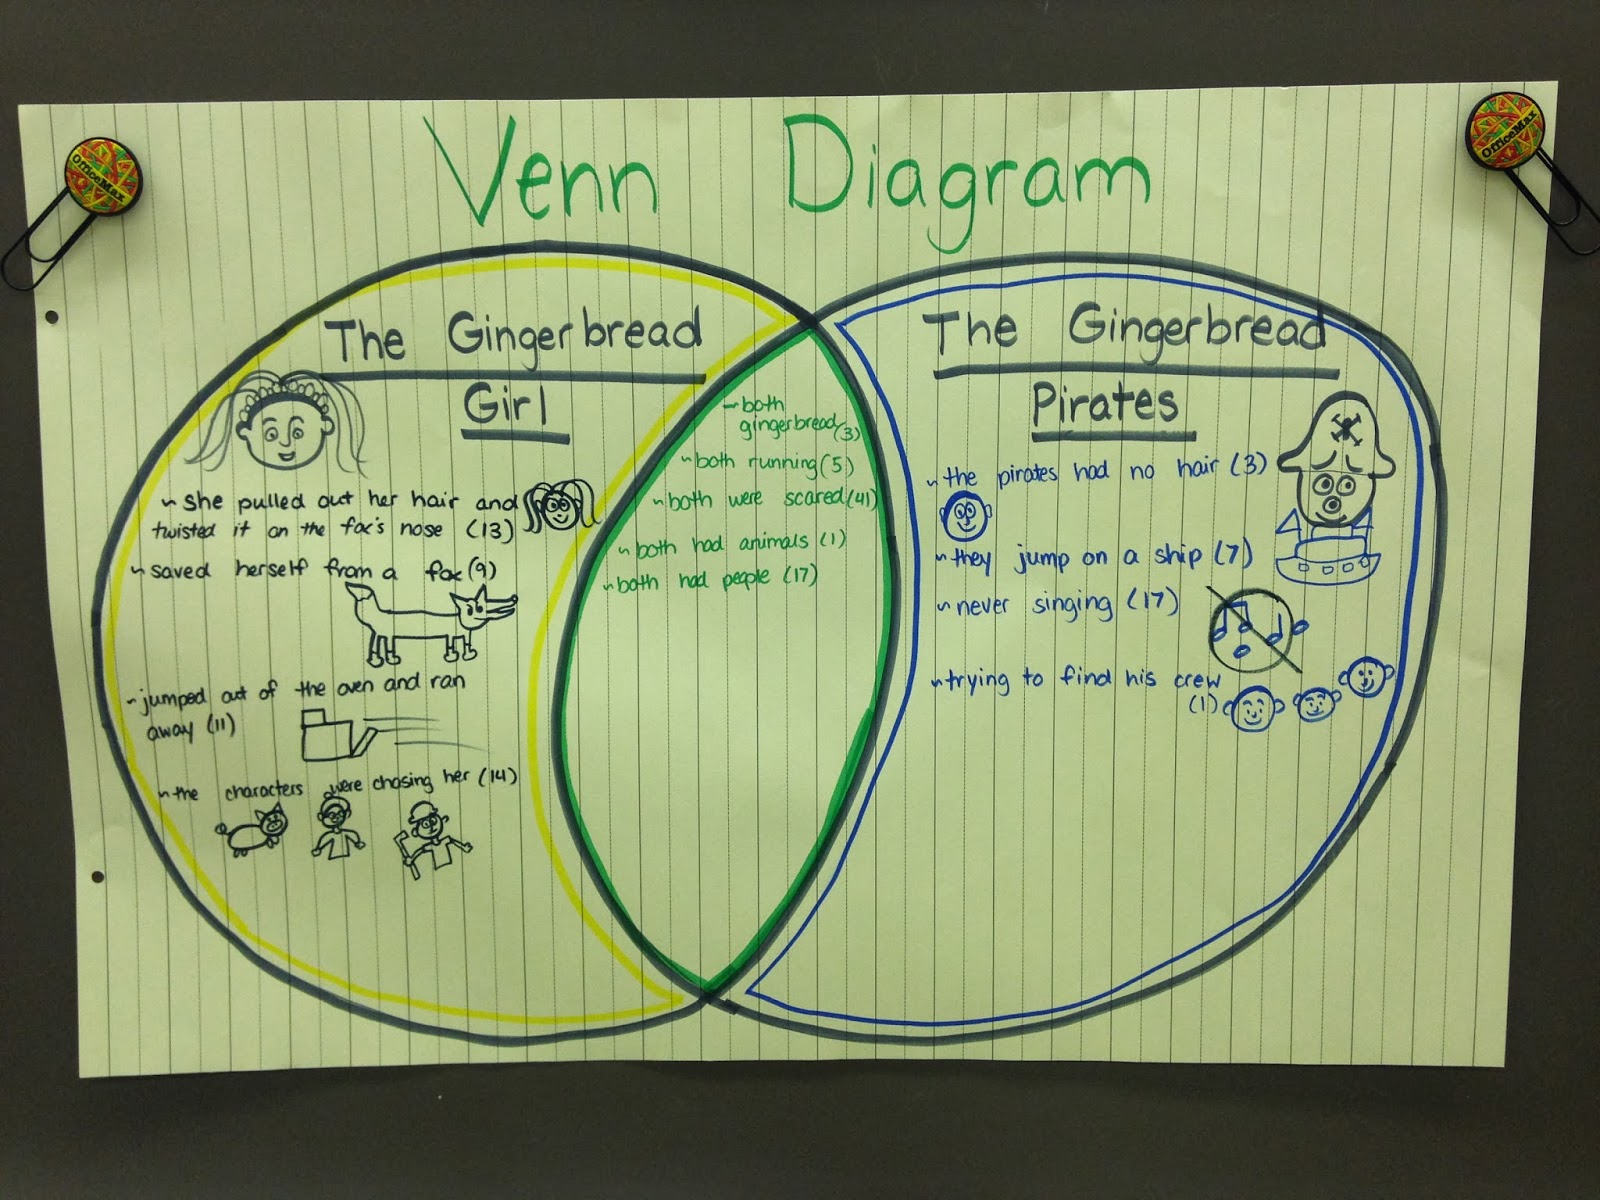 OfficeMax
OfficeMax
Venn Diagram
The Gingerbread
Girl
~ She pulled out her hair and
twisted it on the fox's nose (13)
~ saved herself from a fox (9)
~ jumped out of the oven and ran
away (11)
~ the characters were chasing her (14)
~ both
gingerbread (3)
~ both running (5)
~ both were scared (41)
~ both had animals (1)
~ both had people (17)
The Gingerbread
Pirates
~ the pirates had no hair (3)
~ they jump on a ship (7)
~ never singing (17)
~ trying to find his crew
(1)